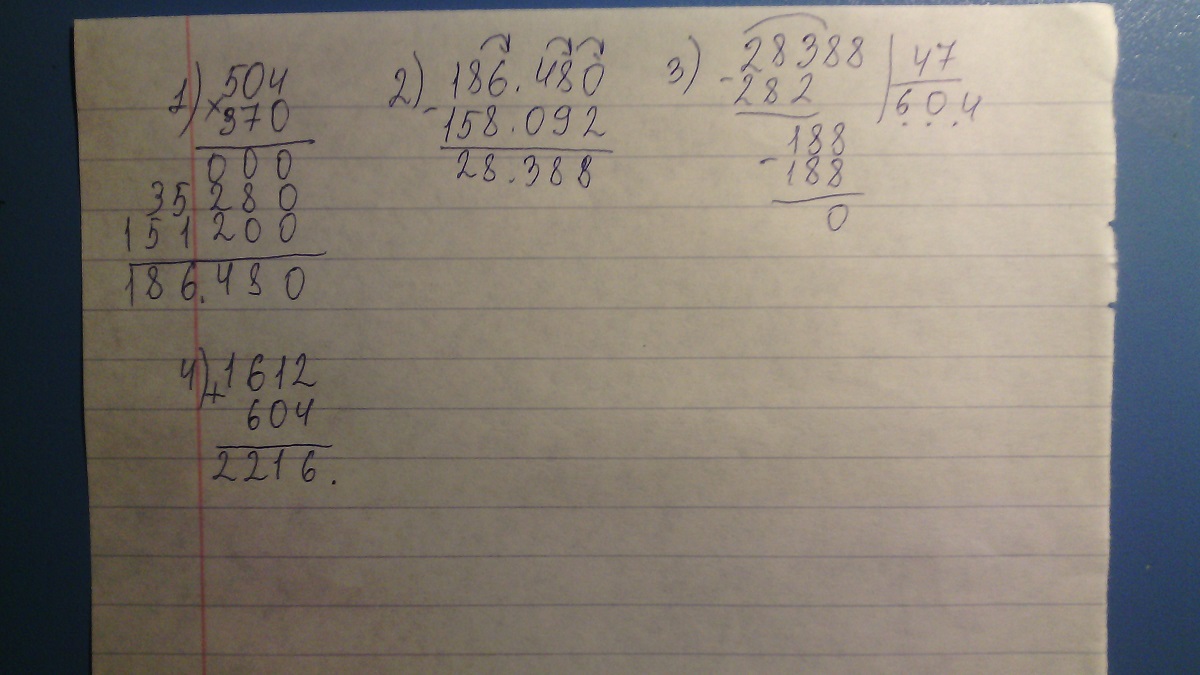 1) 504
× 370
000
35 280
151 200
186.480
2) 186.480
- 158.092
28.388
3) 28388 | 47
- 282 604
188
- 188
0
4) 1612
+ 604
2216.